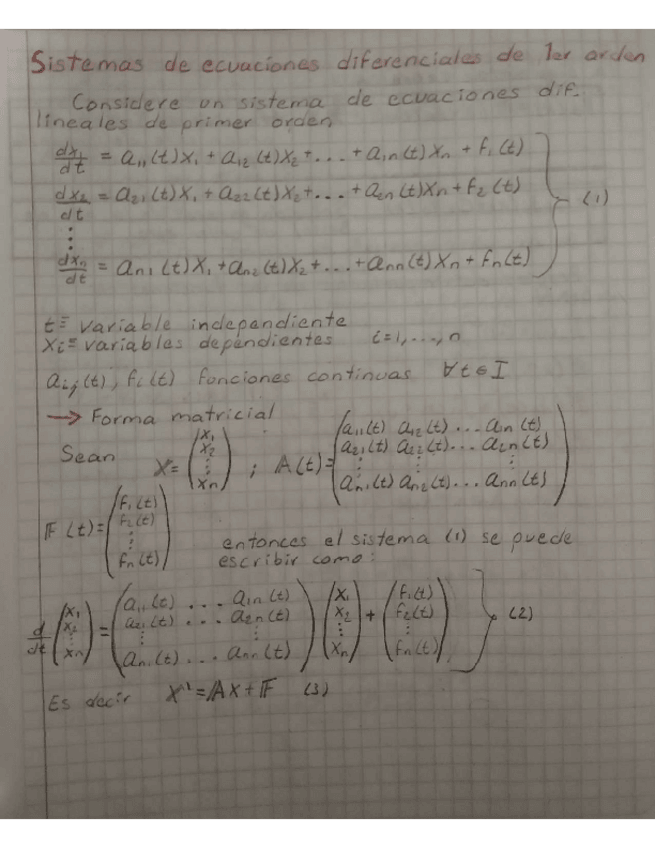 Sistemas de ecuaciones diferenciales de 1er orden
Considere un sistema de ecuaciones dif.
lineales de primer orden
dx₁/dt = a₁₁(t)x₁ + a₁₂(t)x₂ + ... + a₁ₙ(t)xₙ + f₁(t)
dx₂/dt = a₂₁(t)x₁ + a₂₂(t)x₂ + ... + a₂ₙ(t)xₙ + f₂(t) (1)
⋮
dxₙ/dt = aₙ₁(t)x₁ + aₙ₂(t)x₂ + ... + aₙₙ(t)xₙ + fₙ(t)
t ≡ variable independiente
xᵢ ≡ variables dependientes i=1,...,n
aᵢⱼ(t), fᵢ(t) funciones continuas ∀t∈I
→ Forma matricial
Sean X = (x₁ x₂ ⋮ xₙ) ; A(t) = (a₁₁(t) a₁₂(t) ... a₁ₙ(t)
a₂₁(t) a₂₂(t) ... a₂ₙ(t)
⋮ ⋮ ⋮
aₙ₁(t) aₙ₂(t) ... aₙₙ(t))
F(t) = (f₁(t) f₂(t) ⋮ fₙ(t))
entonces el sistema (1) se puede
escribir como:
d/dt (x₁ x₂ ⋮ xₙ) = (a₁₁(t) ... a₁ₙ(t)
a₂₁(t) ... a₂ₙ(t)
⋮ ⋮
aₙ₁(t) ... aₙₙ(t)) (x₁ x₂ ⋮ xₙ) + (f₁(t) f₂(t) ⋮ fₙ(t)) (2)
Es decir X' = AX + F (3)